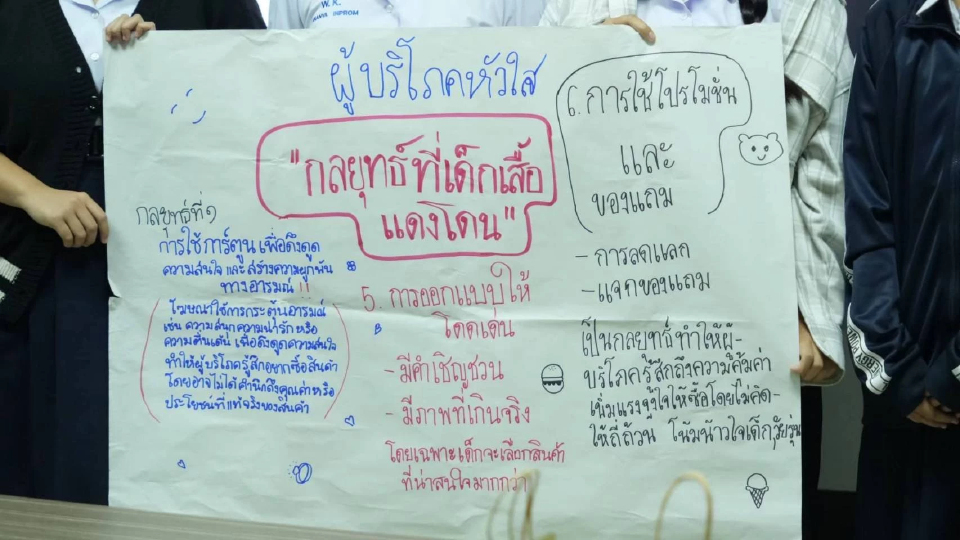 ผู้บริโภคหัวใส
"กลยุทธ์ที่เด็กเสื้อ
แดงโดน"
กลยุทธ์ที่ ๑
การใช้การ์ตูน เพื่อดึงดูด
ความสนใจ และ สร้างความผูกพัน
ทางอารมณ์ !!
โฆษณาใช้การกระตุ้นอารมณ์
เช่น ความสนุก ความน่ารัก หรือ
ความตื่นเต้น เพื่อดึงดูดความสนใจ
ทำให้ผู้บริโภครู้สึกอยากซื้อสินค้า
โดยอาจไม่ได้คำนึกถึงคุณค่าหรือ
ประโยชน์ที่แท้จริงของสินค้า
5. การออกแบบให้
โดดเด่น
- มีคำเชิญชวน
- มีภาพที่เกินจริง
โดยเฉพาะเด็กจะเลือกสินค้า
ที่น่าสนใจมากกว่า
6. การใช้โปรโมชั่น
และ
ของแถม
- การลดแลก
- แจกของแถม
เป็นกลยุทธ์ทำให้ผู้-
บริโภครู้สึกถึงความคุ้มค่า
เพิ่มแรงจูงใจให้ซื้อโดยไม่คิด-
ให้ถี่ถ้วน โน้มน้าวใจเด็ก,วัยรุ่น
W. K.